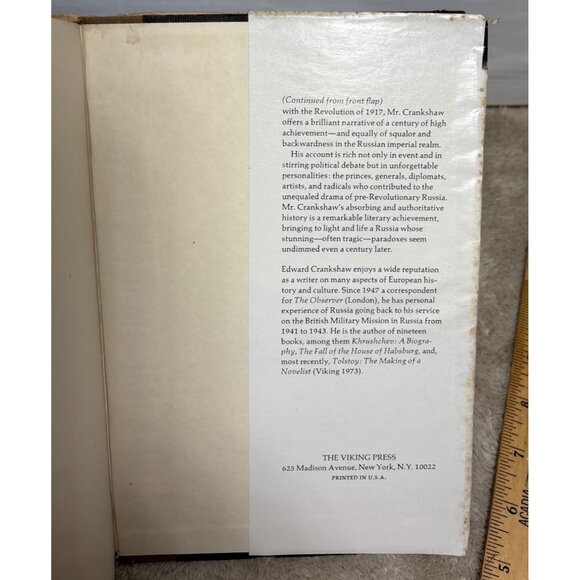 (Continued from front flap)
with the Revolution of 1917, Mr. Crankshaw
offers a brilliant narrative of a century of high
achievement—and equally of squalor and
backwardness in the Russian imperial realm.
His account is rich not only in event and in
stirring political debate but in unforgettable
personalities: the princes, generals, diplomats,
artists, and radicals who contributed to the
unequaled drama of pre-Revolutionary Russia.
Mr. Crankshaw's absorbing and authoritative
history is a remarkable literary achievement,
bringing to light and life a Russia whose
stunning—often tragic—paradoxes seem
undimmed even a century later.
Edward Crankshaw enjoys a wide reputation
as a writer on many aspects of European his-
tory and culture. Since 1947 a correspondent
for The Observer (London), he has personal
experience of Russia going back to his service
on the British Military Mission in Russia from
1941 to 1943. He is the author of nineteen
books, among them Khrushchev: A Biogra-
phy, The Fall of the House of Habsburg, and,
most recently, Tolstoy: The Making of a
Novelist (Viking 1973).
THE VIKING PRESS
625 Madison Avenue, New York, N.Y. 10022
PRINTED IN U.S.A.
7
6
5
ACADIA